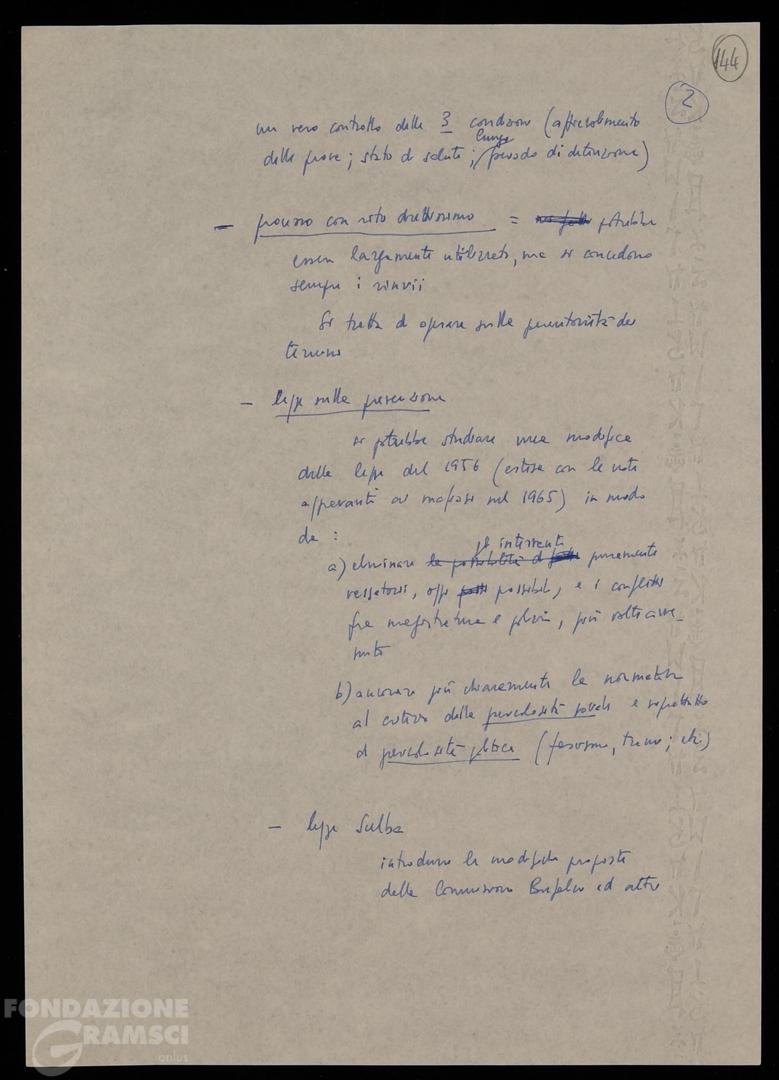 144
2
un vero controllo delle 3 condizioni (affievolimento
delle prove; stato di salute; lungo periodo di detenzione)
- processo con rito direttissimo = potrebbe
essere largamente utilizzato, ma si concedono
sempre i rinvii
Si tratta di operare sulla perentorietà dei
termini
- legge sulla prevenzione
si potrebbe studiare una modifica
della legge del 1956 (estesa con le note
aggravanti ai mafiosi nel 1965) in modo
da :
a) eliminare gli interventi puramente
vessatori, oggi possibili, e i conflitti
fra magistratura e polizia, più volte avve-
nuti
b) ancorare più chiaramente la normativa
al criterio della pericolosità sociale e soprattutto
di pericolosità politica (fascismo, trame; etc.)
- legge Sulla
introdurre le modifiche proposte
dalla Commissione ed altre
FONDAZIONE
GRAMSCI
onlus